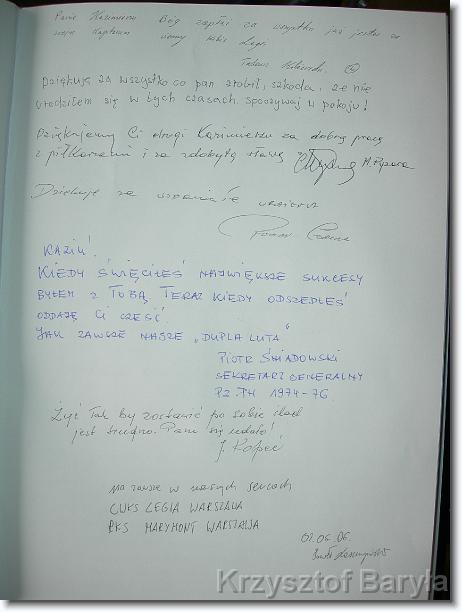 Panie Kazimierzu Bóg zapłać za wszystko jak jestem za
Dziękuję za wszystko co pan zrobił, szkoda, że nie
urodziłem się w tych czasach. Spoczywaj w pokoju!
Dziękujemy Ci drogi Kazimierzu za dobrą pracę
z piłkarzami i za zdobytą sławę
Dziękuję za wspaniałe
KAZIU!
KIEDY ŚWIĘCIŁEŚ NAJWIĘKSZE SUKCESY
BYŁEM Z TOBĄ TERAZ KIEDY ODSZEDŁEŚ
ODDAJĘ CI CZEŚĆ
JAK ZAWSZE NASZE „DUPLA LUTA"
PIOTR ŚNIADOWSKI
SEKRETARZ GENERALNY
PZPN 1974-76
Żyć tak by zostawić po sobie ślad
jest trudno. Panu się udało!
J. Kopeć
Na zawsze w naszych sercach
CWKS LEGIA WARSZAWA
RKS MARYMONT WARSZAWA
07.06.06.
Krzysztof Baryła